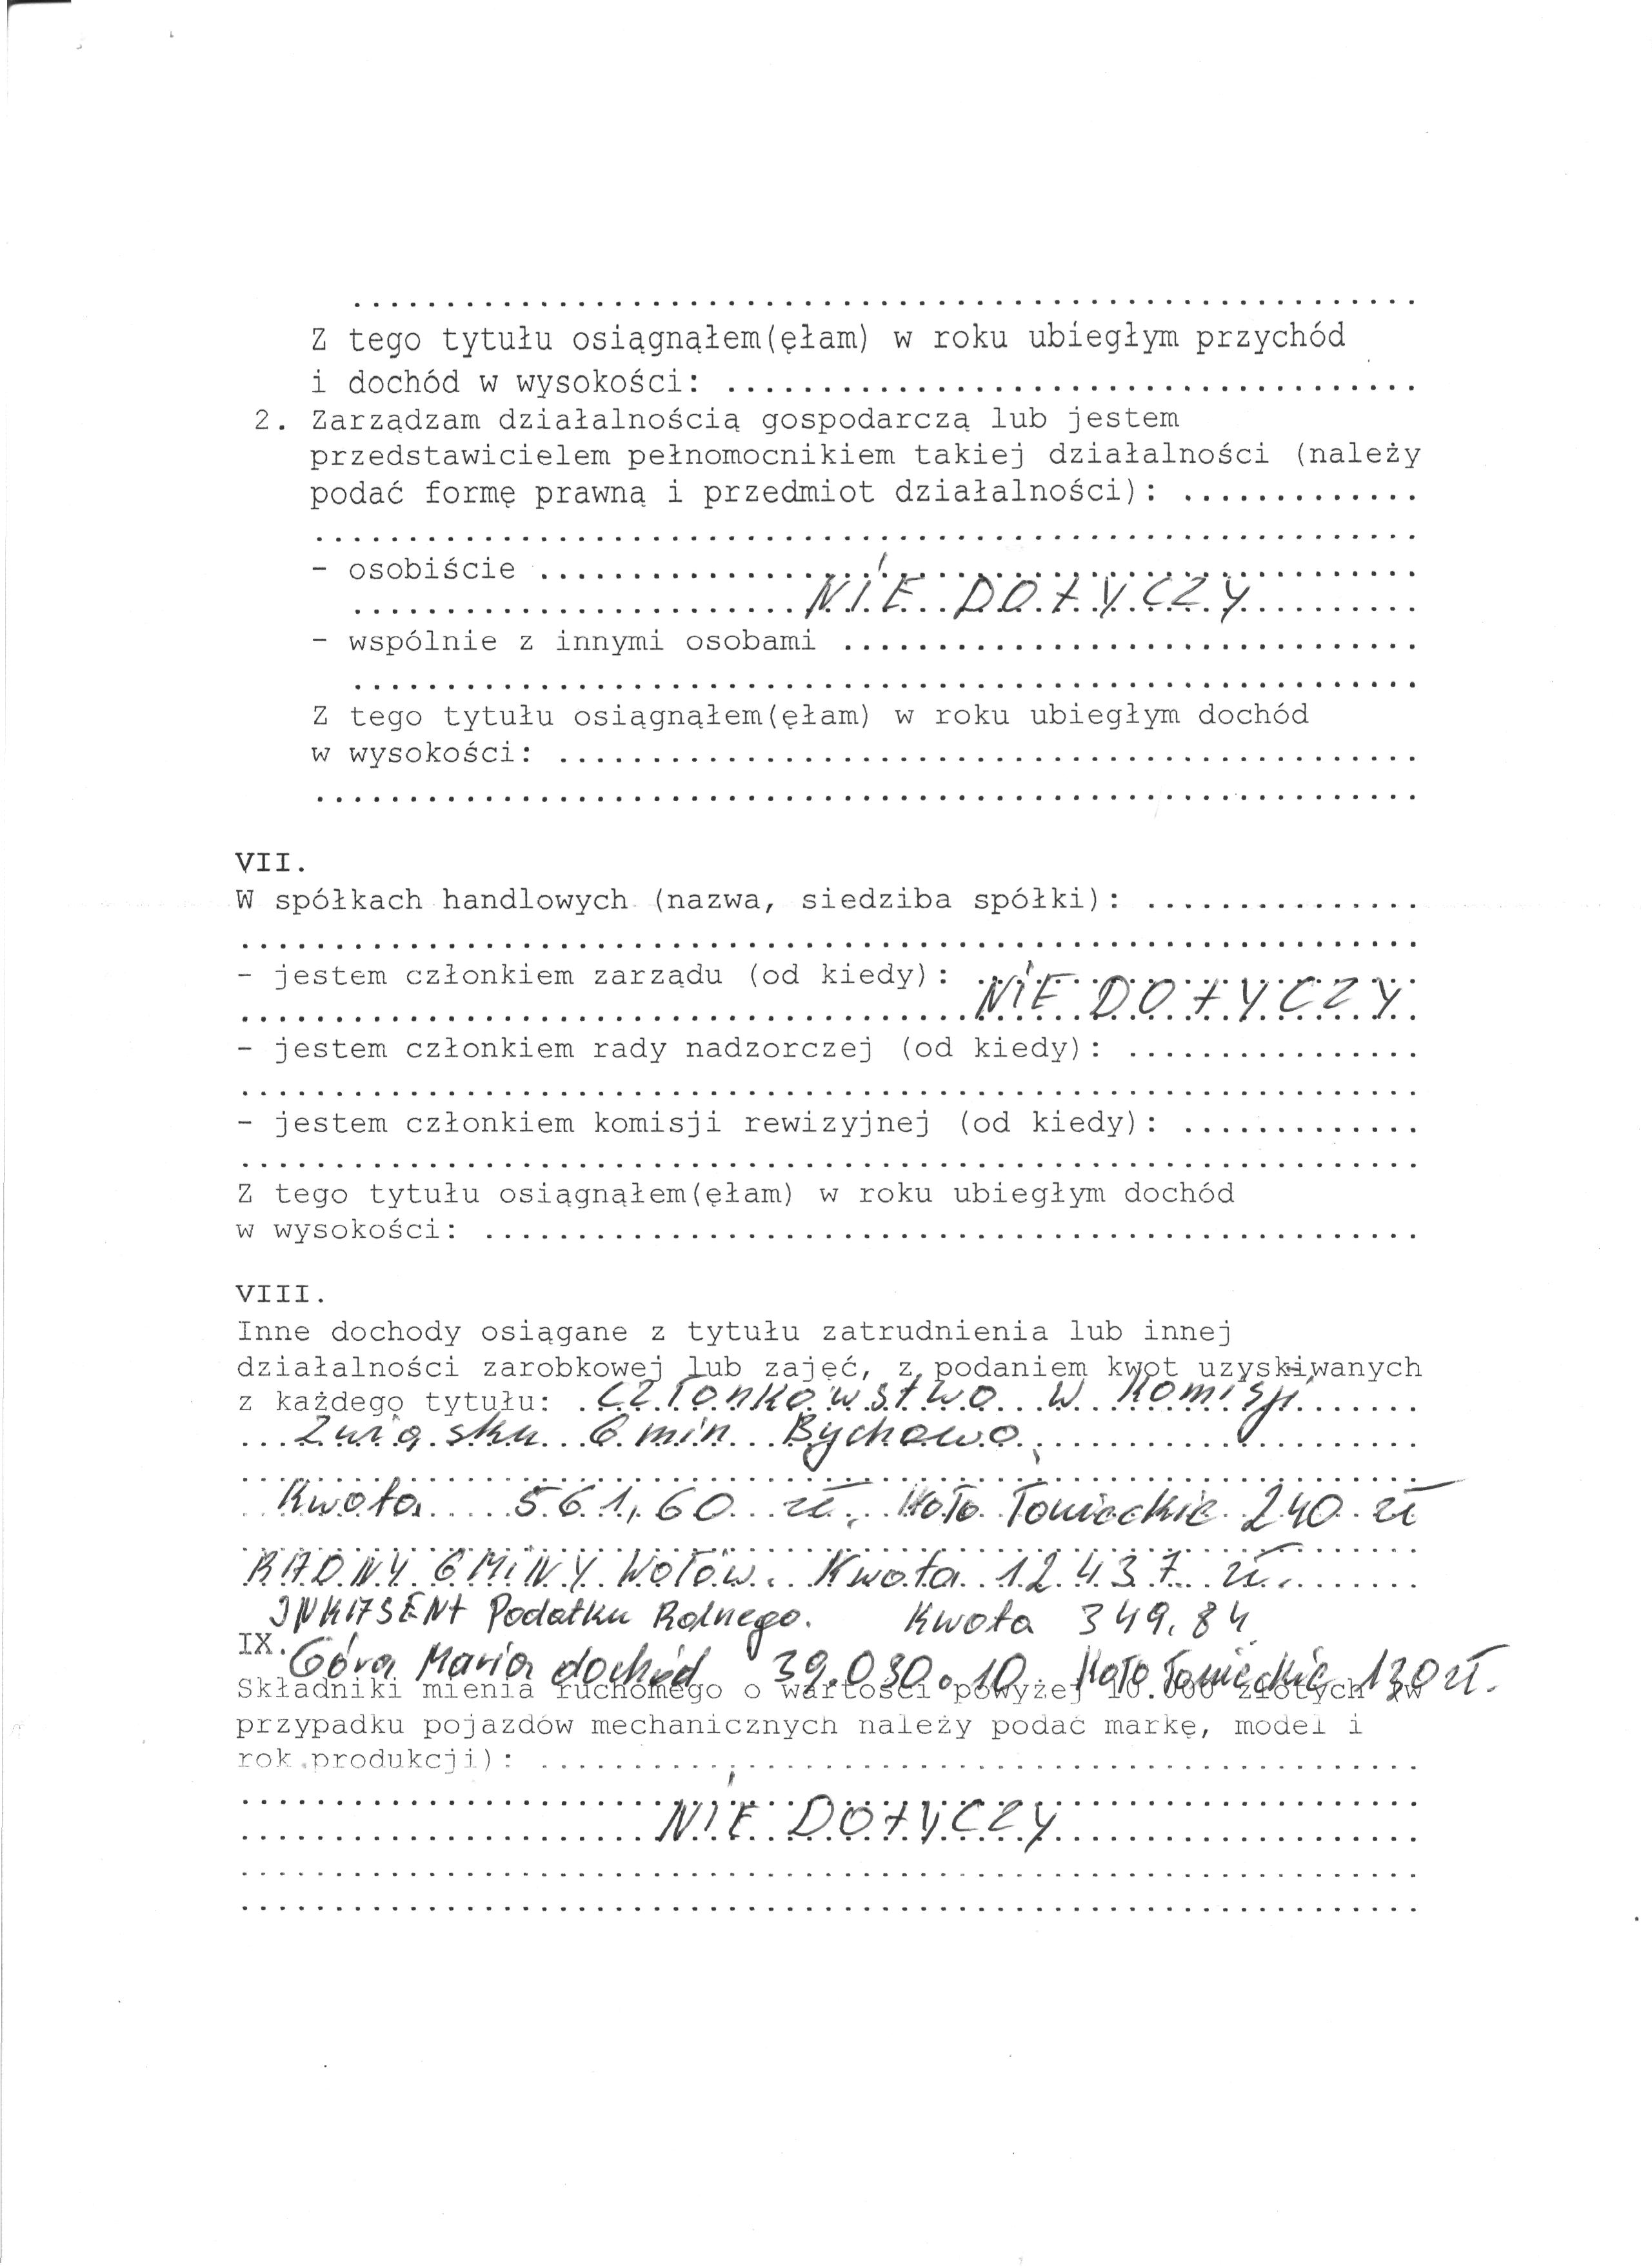 ........................................................
Z tego tytułu osiągnąłem(ęłam) w roku ubiegłym przychód
i dochód w wysokości: .....................................
2. Zarządzam działalnością gospodarczą lub jestem
przedstawicielem pełnomocnikiem takiej działalności (należy
podać formę prawną i przedmiot działalności): .............
...........................................................
- osobiście ...............................................
NIE DOTYCZY
- wspólnie z innymi osobami ...............................
.........................................................
Z tego tytułu osiągnąłem(ęłam) w roku ubiegłym dochód
w wysokości: ..............................................
...........................................................
VII.
W spółkach handlowych (nazwa, siedziba spółki): ...............
...............................................................
- jestem członkiem zarządu (od kiedy):
NIE DOTYCZY
- jestem członkiem rady nadzorczej (od kiedy): ................
...............................................................
- jestem członkiem komisji rewizyjnej (od kiedy): .............
...............................................................
Z tego tytułu osiągnąłem(ęłam) w roku ubiegłym dochód
w wysokości: ..................................................
VIII.
Inne dochody osiągane z tytułu zatrudnienia lub innej
działalności zarobkowej lub zajęć, z podaniem kwot uzyskiwanych
z każdego tytułu: Członkowstwo w Komisji
Związku Gmin Bychowo,
Kwota 561,60 zł, Koło Łowieckie 240 zł
RADNY GMINY Wołów. Kwota 12437 zł.
INKASENT Podatku Rolnego. Kwota 349,84
IX.
Góra Maria dochód 39.030.10 Koło Łowieckie 130 zł.
Składniki mienia ruchomego o wartości powyżej 10.000 złotych (w
przypadku pojazdów mechanicznych należy podać markę, model i
rok produkcji): ...............................................
NIE DOTYCZY
...............................................................
...............................................................